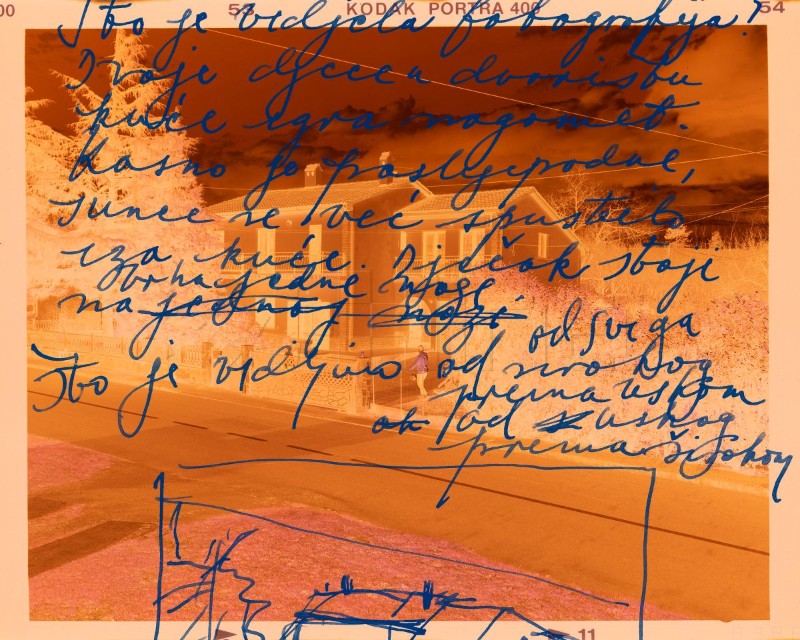 00 53 KODAK PORTRA 400 54
Što je vidjela fotografija?
Dvoje djece u dvorištu
kuće igra nogomet.
Kasno je poslijepodne,
sunce se već spustilo
iza kuće. Dječak stoji
jedne noge
na jednoj nozi od svega
što je vidljivo od širokog
prema uskom
od uskog
prema širokom
11